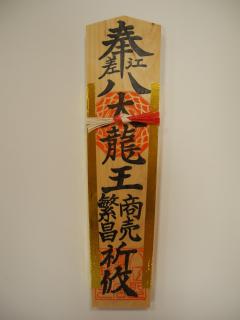 奉
江差
八大龍王
商売
繁昌
祈攸